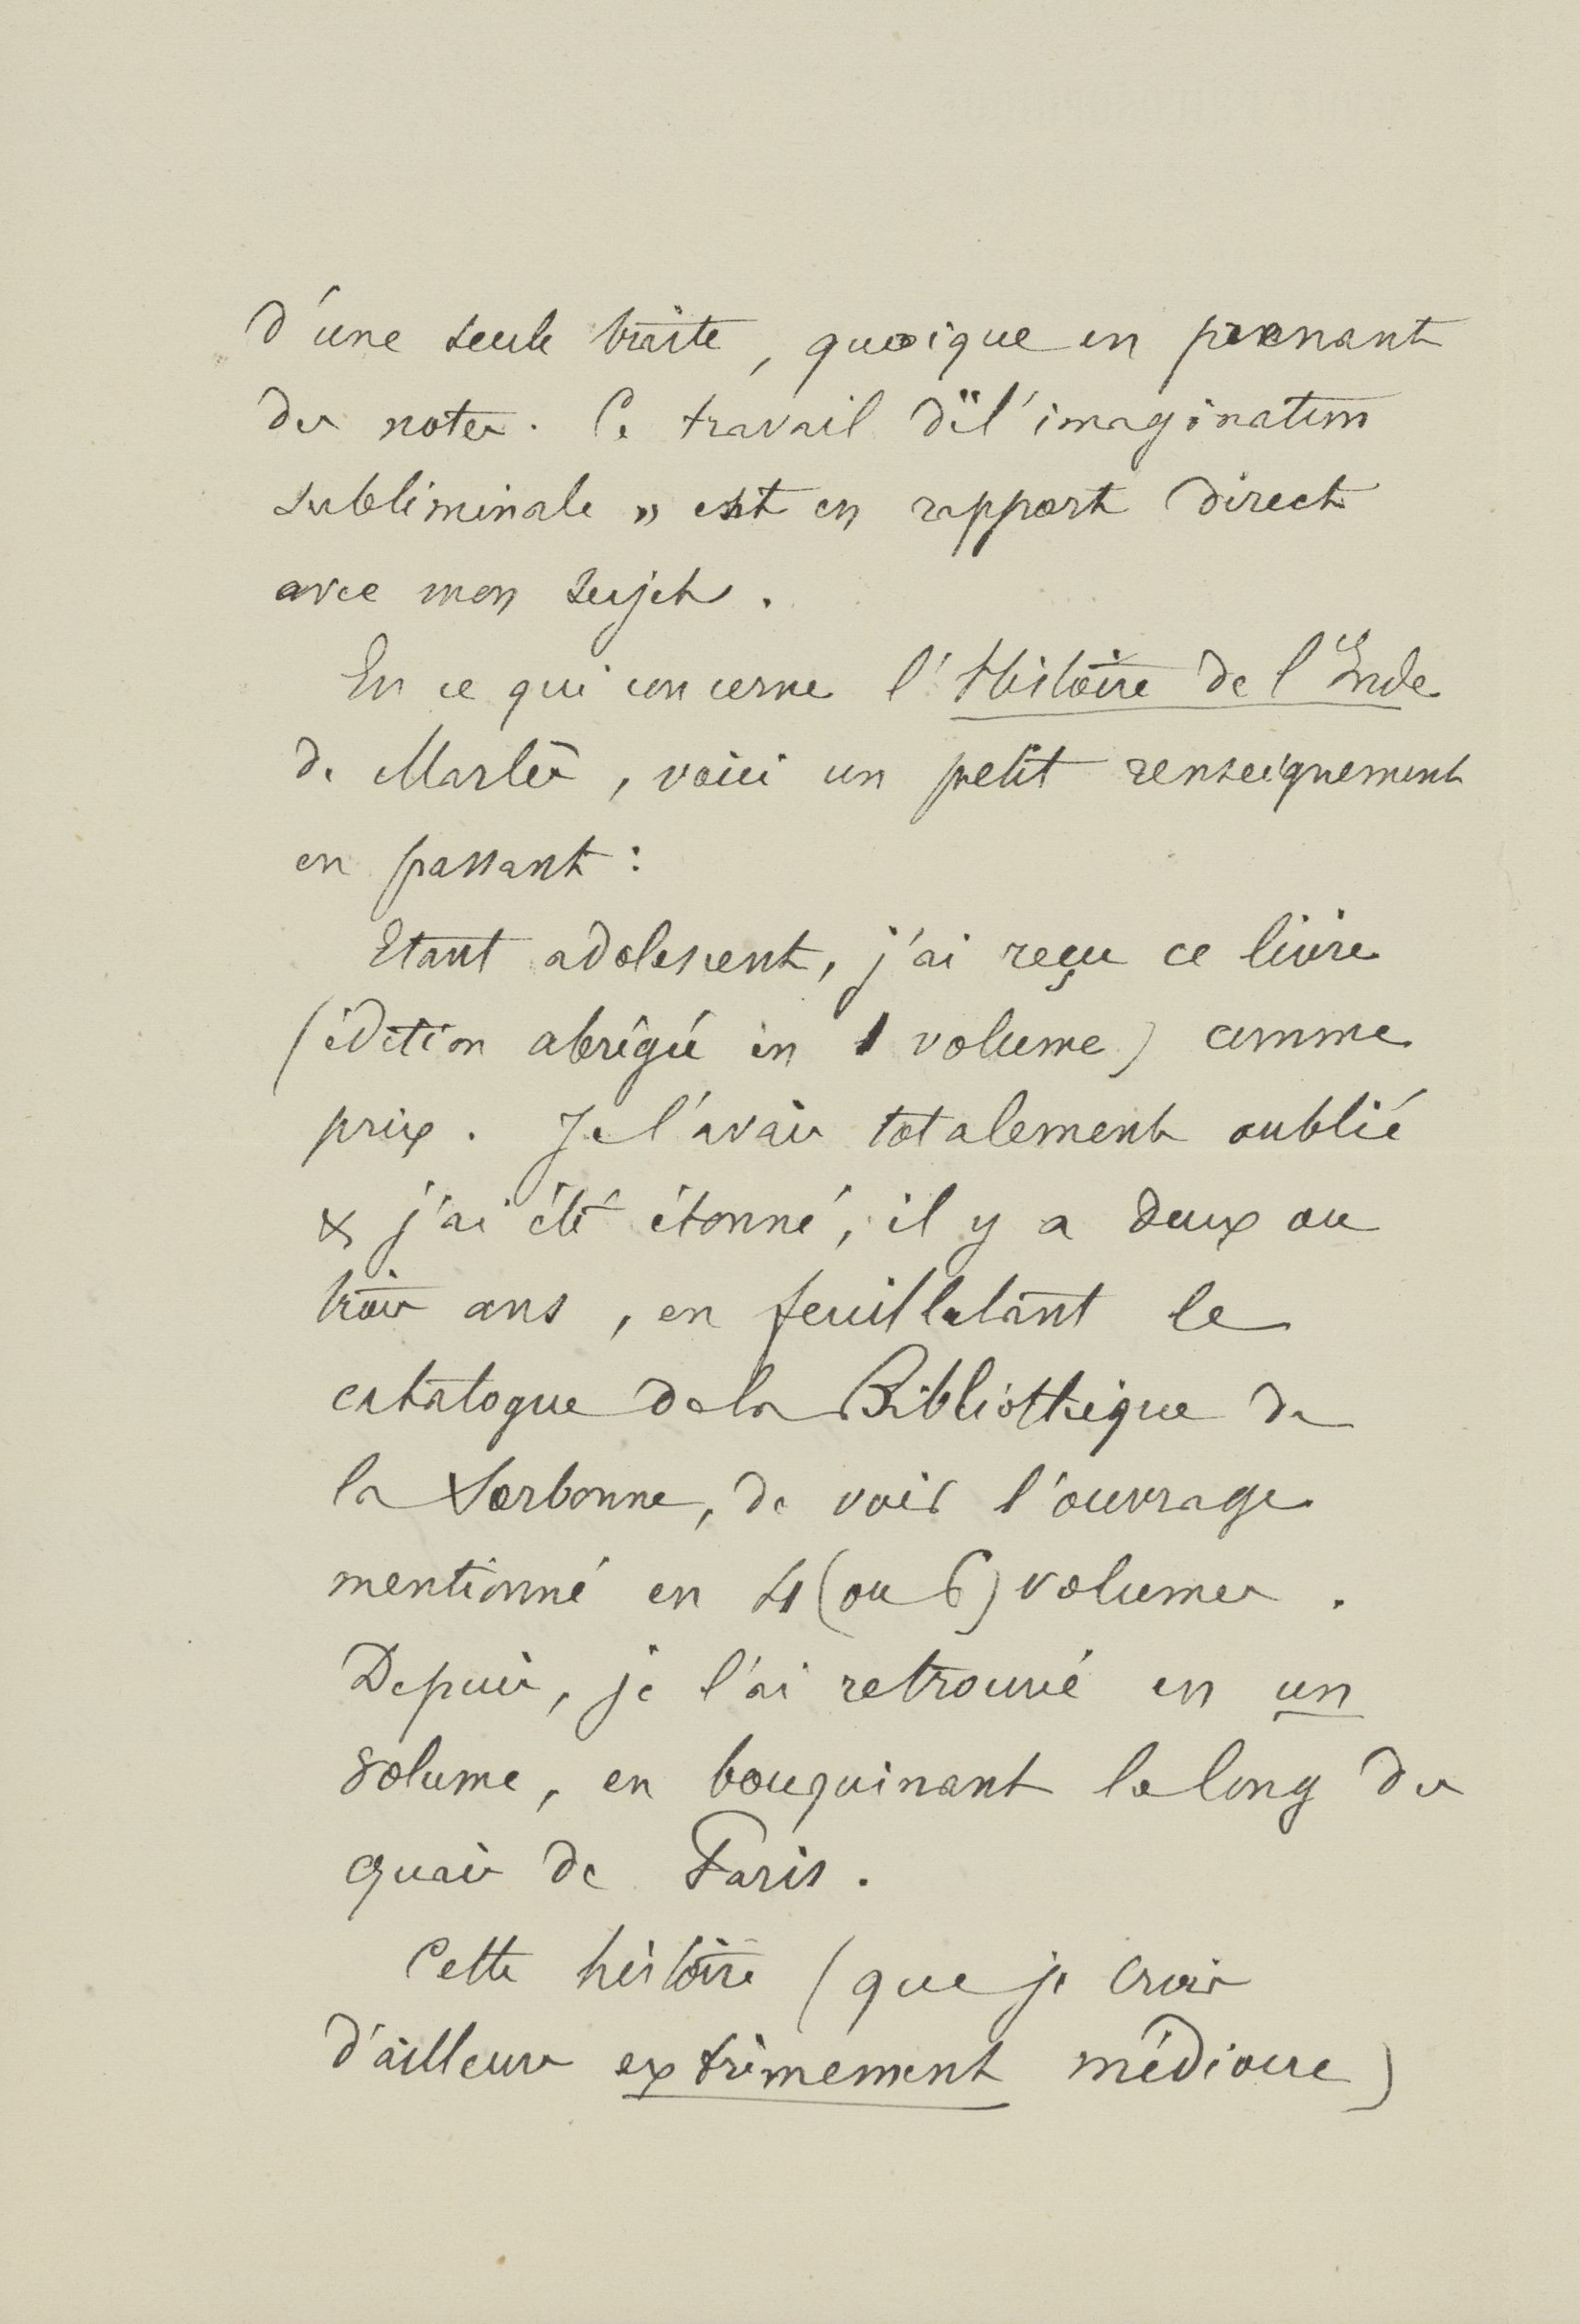 d'une seule traite, quoique en prenant
des notes. Ce travail d'"l'imagination
subliminale" est en rapport direct
avec mon sujet.
En ce qui concerne l'Histoire de l'Inde
de Marlès, voici un petit renseignement
en passant :
Etant adolescent, j'ai reçu ce livre
(édition abrégée en 1 volume) comme
prix. Je l'avais totalement oublié
& j'ai été étonné, il y a deux ou
trois ans, en feuilletant le
catalogue de la Bibliothèque de
la Sorbonne, de voir l'ouvrage
mentionné en 4 (ou 6) volumes.
Depuis, je l'ai retrouvé en un
volume, en bouquinant le long des
quais de Paris.
Cette histoire (que je crois
d'ailleurs extrêmement médiocre)